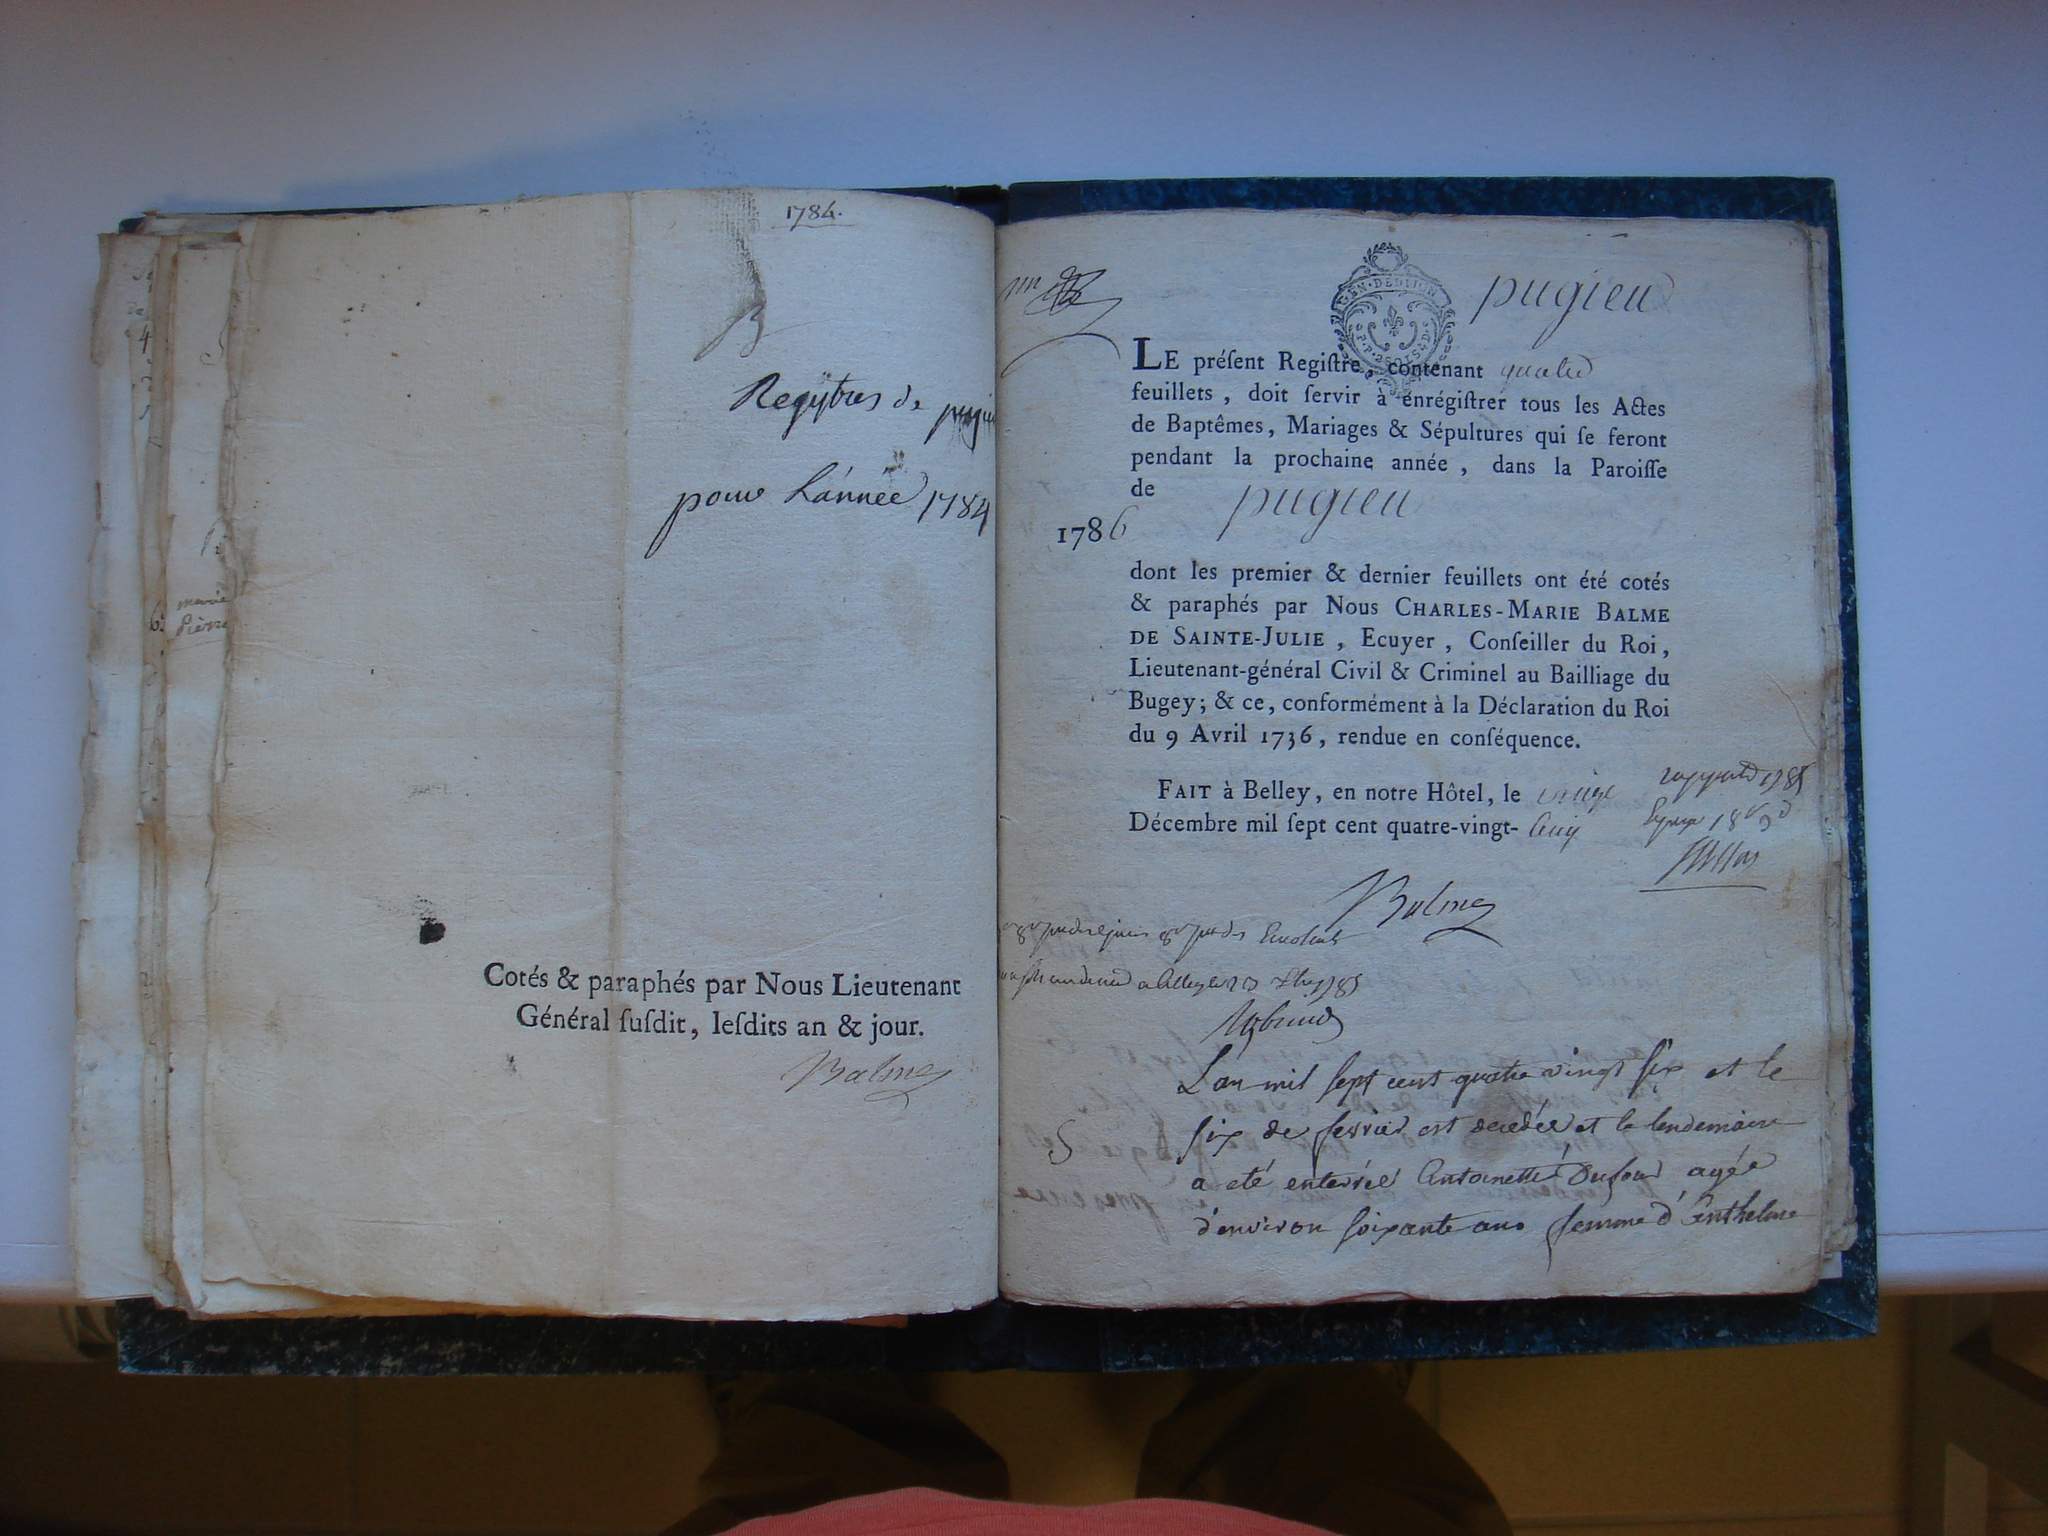 1784.
Regÿtres de pugieu
pour L'année 1784
Cotés & paraphés par Nous Lieutenant
Général ſuſdit, leſdits an & jour.
Balme
pugieu
GEN DE DIJON
LE préſent Regiſtre, contenant quatre
feuillets, doit ſervir à enrégiſtrer tous les Actes
de Baptêmes, Mariages & Sépultures qui ſe feront
pendant la prochaine année, dans la Paroiſſe
de pugieu
1786
dont les premier & dernier feuillets ont été cotés
& paraphés par Nous CHARLES-MARIE BALME
DE SAINTE-JULIE, Ecuyer, Conſeiller du Roi,
Lieutenant-général Civil & Criminel au Bailliage du
Bugey; & ce, conformément à la Déclaration du Roi
du 9 Avril 1736, rendue en conſéquence.
FAIT à Belley, en notre Hôtel, le
Décembre mil ſept cent quatre-vingt-cinq
Balme
L'an mil sept cent quatre vingt six et le
six de fevrier est decedée et le lendemain
S
a eté enterrée Antoinette Dufour agée
d'environ soixante ans femme d'Anthelme